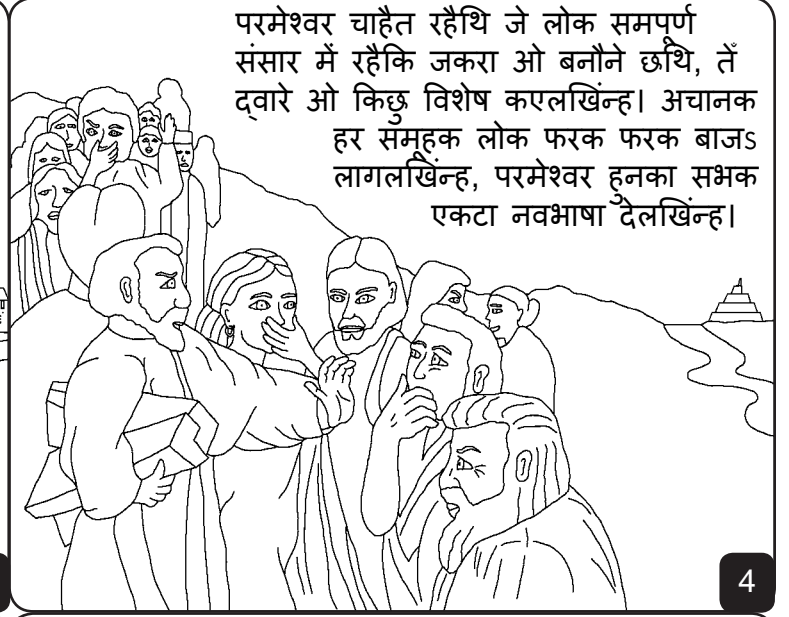 परमेश्वर चाहैत रहैथि जे लोक समपूर्ण
संसार में रहैकि जकरा ओ बनौने छथि, तेँ
द्वारे ओ किछु विशेष कएलखिंन्ह। अचानक
हर समूहक लोक फरक फरक बाजऽ
लागलखिंन्ह, परमेश्वर हुनका सभक
एकटा नवभाषा देलखिंन्ह।
4